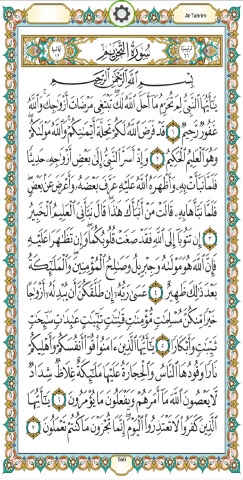 At-Tahrim
سُورَةُ التَّحْرِيمِ
بِسْمِ اللَّهِ الرَّحْمَٰنِ الرَّحِيمِ
يَا أَيُّهَا النَّبِيُّ لِمَ تُحَرِّمُ مَا أَحَلَّ اللَّهُ لَكَ تَبْتَغِي مَرْضَاتَ أَزْوَاجِكَ وَاللَّهُ
غَفُورٌ رَّحِيمٌ ١ قَدْ فَرَضَ اللَّهُ لَكُمْ تَحِلَّةَ أَيْمَانِكُمْ وَاللَّهُ مَوْلَاكُمْ
وَهُوَ الْعَلِيمُ الْحَكِيمُ ٢ وَإِذْ أَسَرَّ النَّبِيُّ إِلَىٰ بَعْضِ أَزْوَاجِهِ حَدِيثًا
فَلَمَّا نَبَّأَتْ بِهِ وَأَظْهَرَهُ اللَّهُ عَلَيْهِ عَرَّفَ بَعْضَهُ وَأَعْرَضَ عَن بَعْضٍ
فَلَمَّا نَبَّأَهَا بِهِ قَالَتْ مَنْ أَنبَأَكَ هَٰذَا قَالَ نَبَّأَنِيَ الْعَلِيمُ الْخَبِيرُ
٣ إِن تَتُوبَا إِلَى اللَّهِ فَقَدْ صَغَتْ قُلُوبُكُمَا وَإِن تَظَاهَرَا عَلَيْهِ
فَإِنَّ اللَّهَ هُوَ مَوْلَاهُ وَجِبْرِيلُ وَصَالِحُ الْمُؤْمِنِينَ وَالْمَلَائِكَةُ
بَعْدَ ذَٰلِكَ ظَهِيرٌ ٤ عَسَىٰ رَبُّهُ إِن طَلَّقَكُنَّ أَن يُبْدِلَهُ أَزْوَاجًا
خَيْرًا مِّنكُنَّ مُسْلِمَاتٍ مُّؤْمِنَاتٍ قَانِتَاتٍ تَائِبَاتٍ عَابِدَاتٍ سَائِحَاتٍ
ثَيِّبَاتٍ وَأَبْكَارًا ٥ يَا أَيُّهَا الَّذِينَ آمَنُوا قُوا أَنفُسَكُمْ وَأَهْلِيكُمْ
نَارًا وَقُودُهَا النَّاسُ وَالْحِجَارَةُ عَلَيْهَا مَلَائِكَةٌ غِلَاظٌ شِدَادٌ
لَّا يَعْصُونَ اللَّهَ مَا أَمَرَهُمْ وَيَفْعَلُونَ مَا يُؤْمَرُونَ ٦ يَا أَيُّهَا
الَّذِينَ كَفَرُوا لَا تَعْتَذِرُوا الْيَوْمَ إِنَّمَا تُجْزَوْنَ مَا كُنتُمْ تَعْمَلُونَ ٧
560